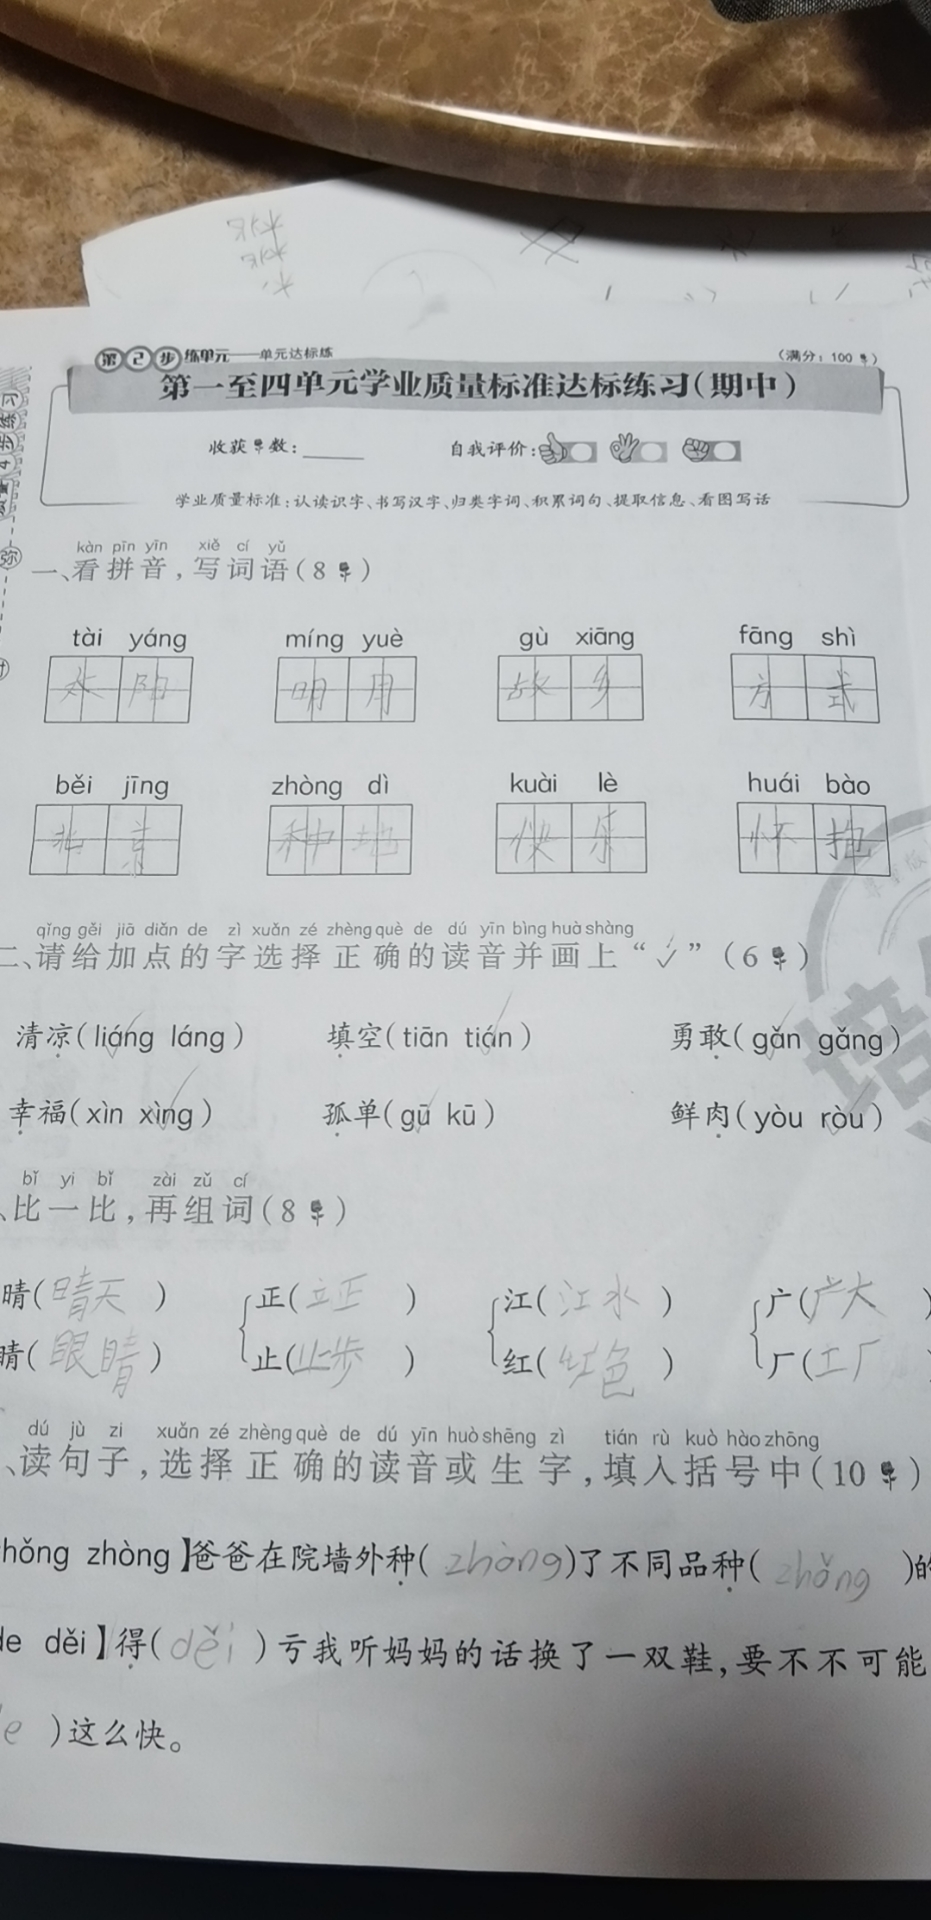 第2步 练单元——单元达标练 (满分:100)
第一至四单元学业质量标准达标练习(期中)
收获 数:
自我评价:
学业质量标准:认读识字、书写汉字、归类字词、积累词句、提取信息、看图写话
kàn pīn yīn xiě cí yǔ
一、看拼音,写词语(8)
tài yáng míng yuè gù xiāng fāng shì
太阳 明月 故乡 方式
běi jīng zhòng dì kuài lè huái bào
北京 种地 快乐 怀抱
qǐng gěi jiā diǎn de zì xuǎn zé zhèng què de dú yīn bìng huà shàng
二、请给加点的字选择正确的读音并画上“✓”(6)
清凉(liáng láng) 填空(tiān tián) 勇敢(gǎn gǎng)
幸福(xìn xìng) 孤单(gū kū) 鲜肉(yòu ròu)
bǐ yi bǐ zài zǔ cí
、比一比,再组词(8)
晴(晴天) 正(立正) 江(江水) 广(广大)
睛(眼睛) 止(止步) 红(红色) 厂(工厂)
dú jù zi xuǎn zé zhèng què de dú yīn huò shēng zì tián rù kuò hào zhōng
、读句子,选择正确的读音或生字,填入括号中(10)
hǒng zhòng】爸爸在院墙外种(zhòng)了不同品种(zhǒng)的
de děi】得(děi)亏我听妈妈的话换了一双鞋,要不不可能
e)这么快。
培